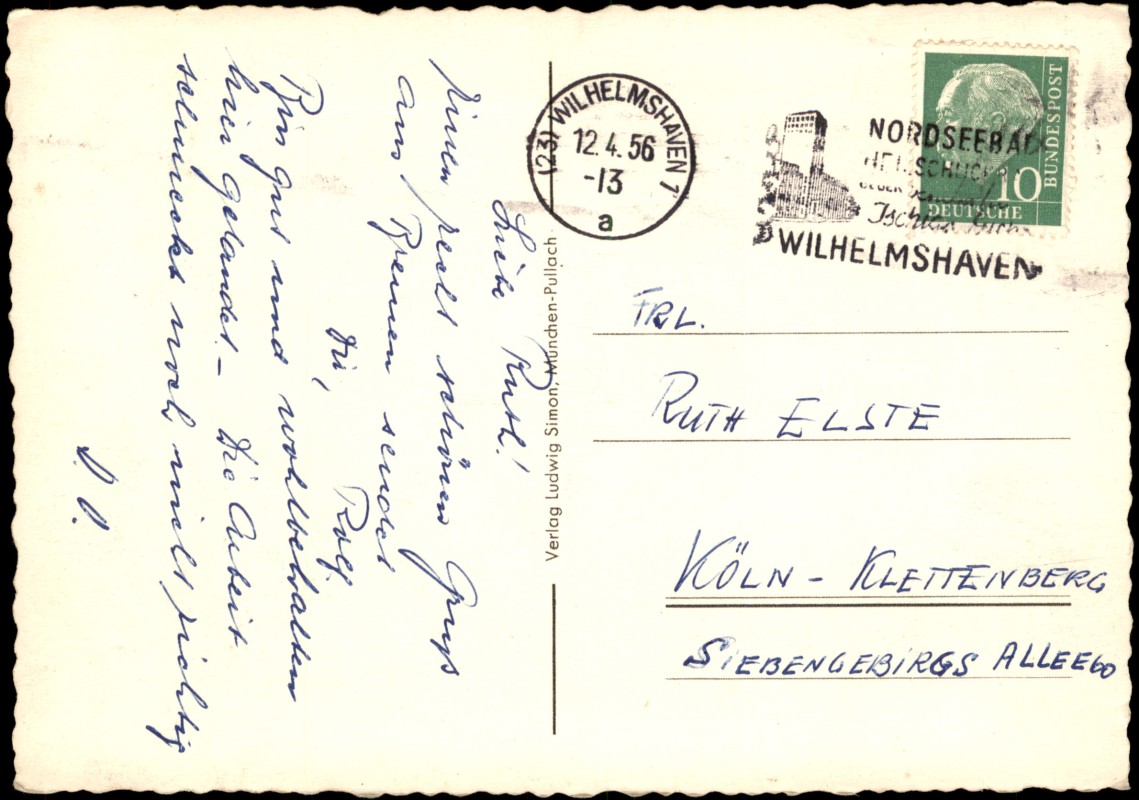 Liebe Ruth!
Einen recht schönen Gruß
aus Bremen sendet
Dir,
Rolf.
Bin gut und wohlbehalten
hier gelandet. – Die Arbeit
schmeckt noch nicht richtig
D. O.
Verlag Ludwig Simon, München-Pullach
(23) WILHELMSHAVEN 1
12.4.56
-13
a
NORDSEEBAD
WILHELMSHAVEN
10
DEUTSCHE
BUNDESPOST
FRL.
RUTH ELSTE
KÖLN - KLETTENBERG
SIEBENGEBIRGS ALLEE 60